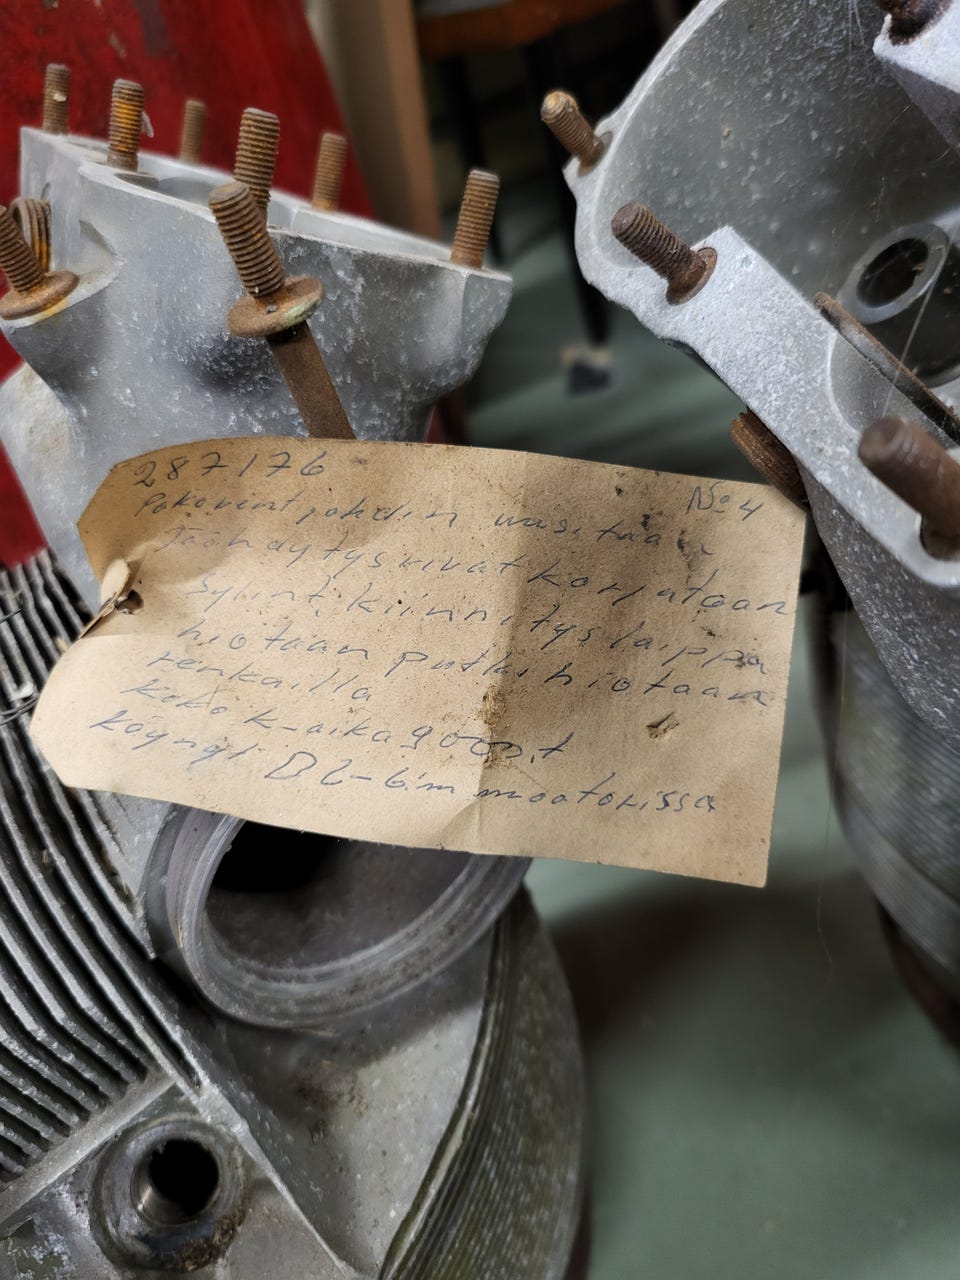 287176 No 4
Pakovent, johdin uusitaan
Jäähdytysrivat korjataan
Sylint, kiinnityslaippa
hiotaan putki hiotaan
renkailla
koko k-aika 900 t
käynyt BL-6:m moottorissa